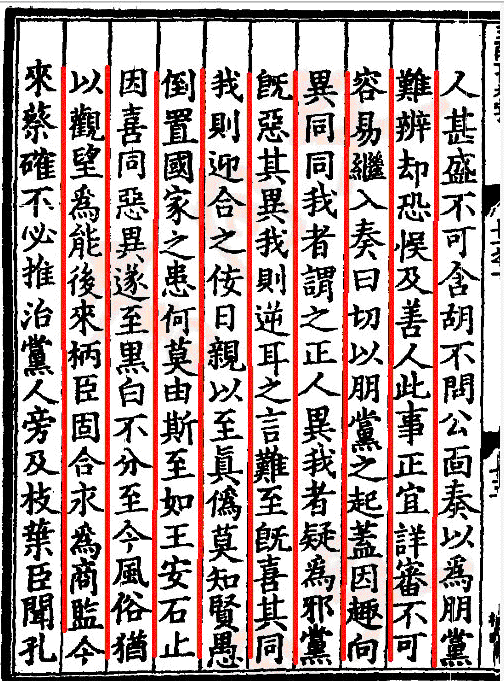 人甚盛不可含胡不問公面奏以爲朋黨
難辨却恐悮及善人此事正宜詳審不可
容易繼入奏曰切以朋黨之起蓋因趣向
異同同我者謂之正人異我者疑爲邪黨
旣惡其異我則逆耳之言難至旣喜其同
我則迎合之佞日親以至眞僞莫知賢愚
倒置國家之患何莫由斯至如王安石止
因喜同惡異遂至黑白不分至今風俗猶
以觀望爲能後來柄臣固合永爲商監今
來蔡確不必推治黨人旁及枝葉臣聞孔